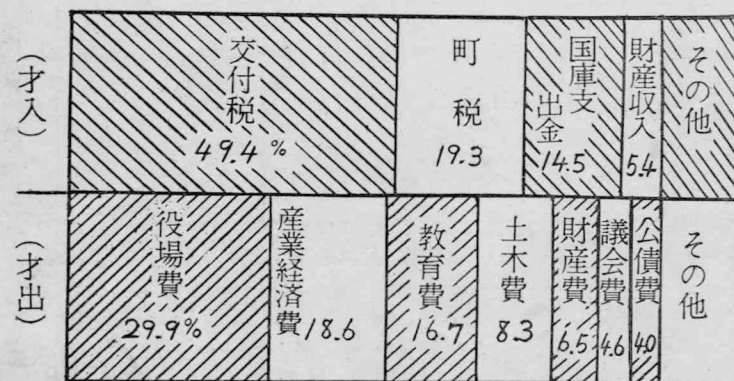 (才入)
交付税
49.4%
町税
19.3
国庫支出金
14.5
財産収入
5.4
その他
(才出)
役場費
29.9%
産業経済費
18.6
教育費
16.7
土木費
8.3
財産費
6.5
議会費
4.6
公債費
4.0
その他